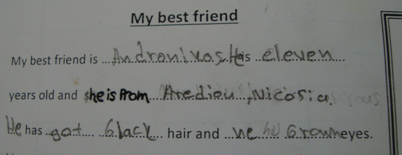 My best friend
My best friend is Andronikos. He is eleven
years old and she is from Arediou, Nicosia.
He has got black hair and he has brown eyes.